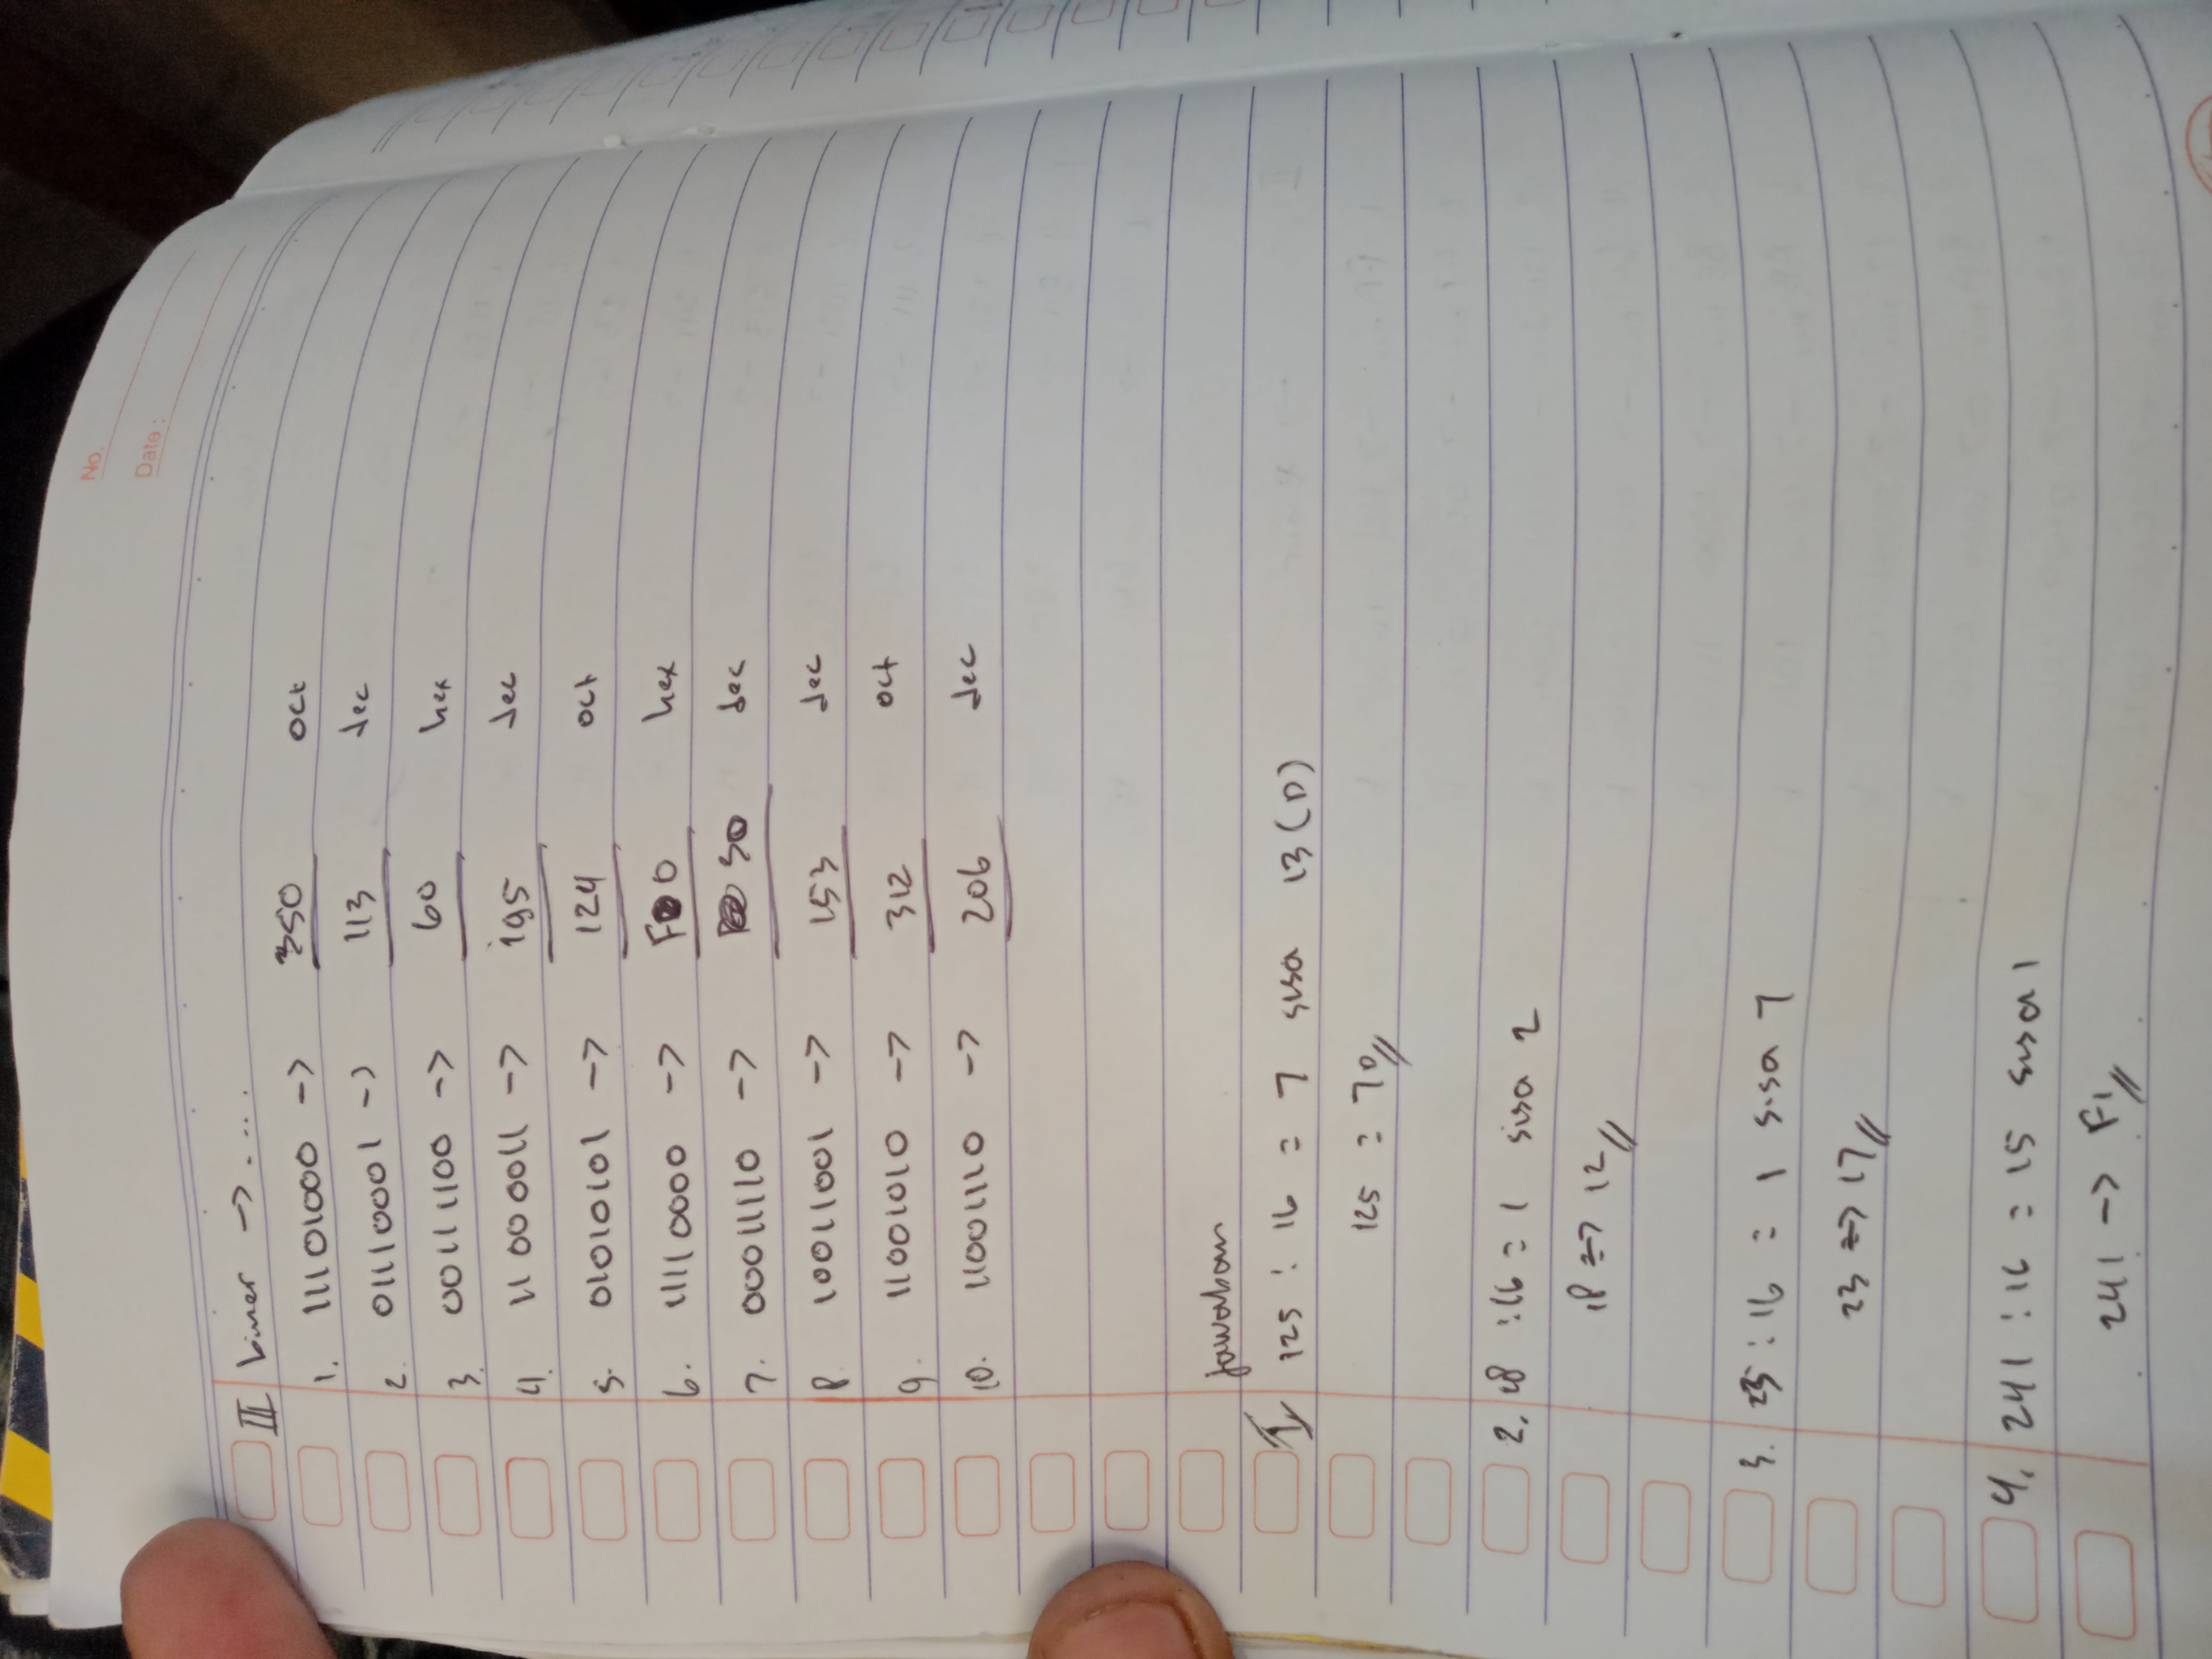 No.
Date :
III biner -> ....
1. 11101000 -> 350 oct
2. 01110001 -> 113 dec
3. 00111100 -> 60 hex
4. 11000011 -> 195 dec
5. 01010101 -> 124 oct
6. 11110000 -> F0 hex
7. 00011110 -> 30 dec
8. 10011001 -> 153 dec
9. 11001010 -> 312 oct
10. 11001110 -> 206 dec
jawaban
I 125 : 16 = 7 sisa 13 (D)
125 = 7D//
2. 18 : 16 = 1 sisa 2
18 => 12//
3. 23 : 16 = 1 sisa 7
23 => 17//
4. 241 : 16 = 15 sisa 1
241 -> F1//